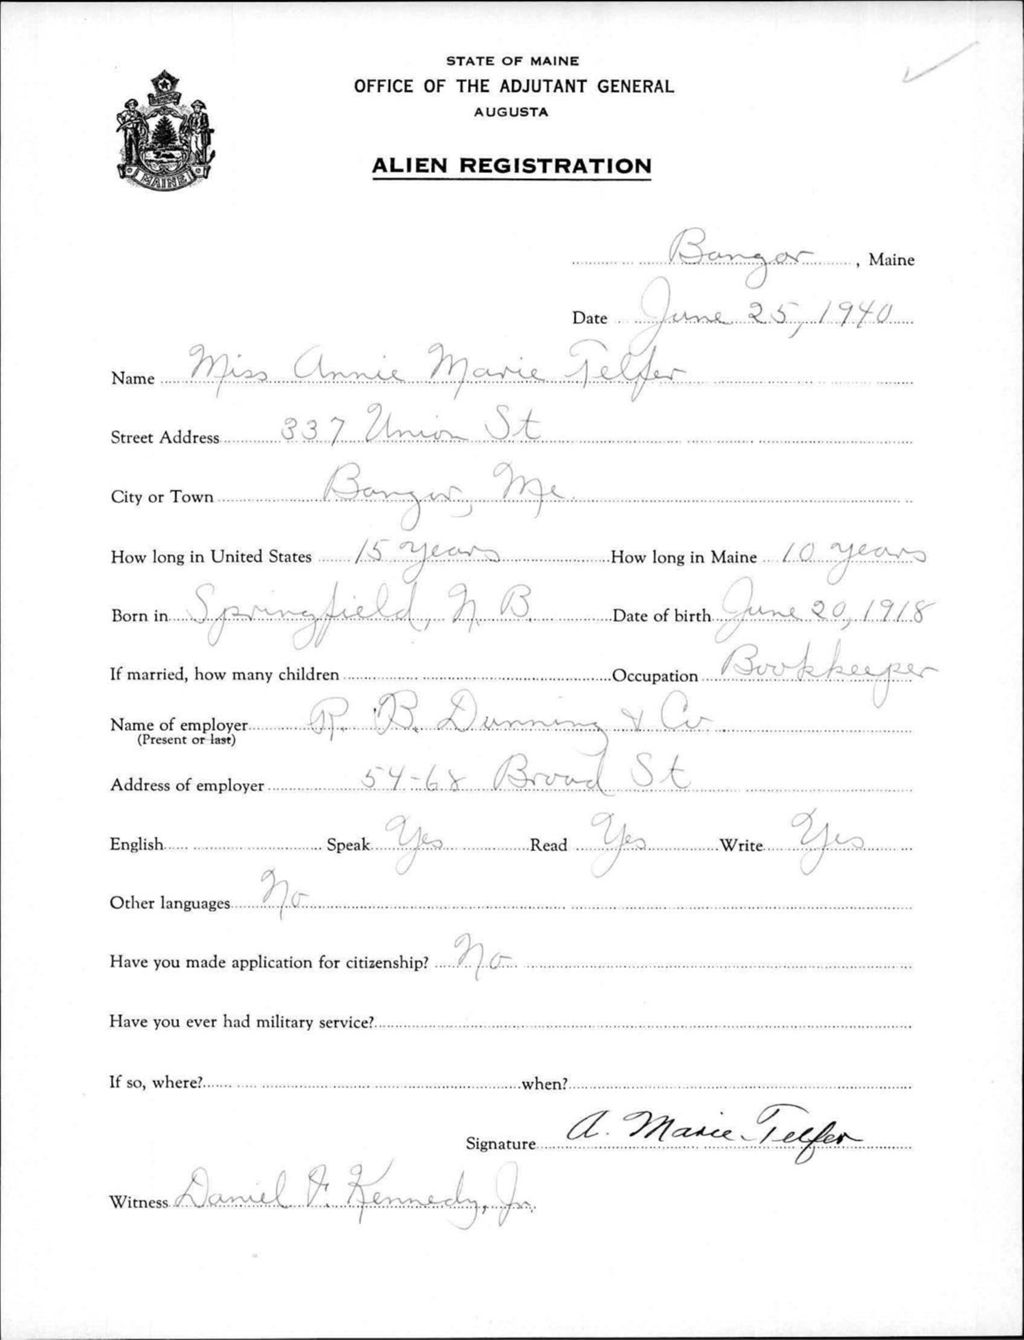 STATE OF MAINE
OFFICE OF THE ADJUTANT GENERAL
AUGUSTA
ALIEN REGISTRATION
MAINE
Bangor, Maine
Date June 25, 1940
Name Miss Annie Marie Telfer
Street Address 337 Union St
City or Town Bangor, Me.
How long in United States 15 years How long in Maine 10 years
Born in Springfield, N.B. Date of birth June 20, 1918
If married, how many children Occupation Bookkeeper
Name of employer R. B. Dunning & Co
(Present or last)
Address of employer 54-68 Broad St
English Speak Yes Read Yes Write Yes
Other languages No
Have you made application for citizenship? No
Have you ever had military service?
If so, where? when?
Signature A. Marie Telfer
Witness Daniel F. Kennedy, Jr.